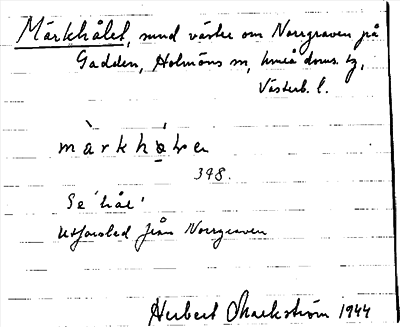 Märkhålet, sund väster om Norrgraven på
Gadden, Holmöns sn, Umeå doms. tg,
Västerb. l.
märkhå̀ḷɐ
398.
Se 'hål'.
Utforslad från Norrgraven
Herbert Markström 1944